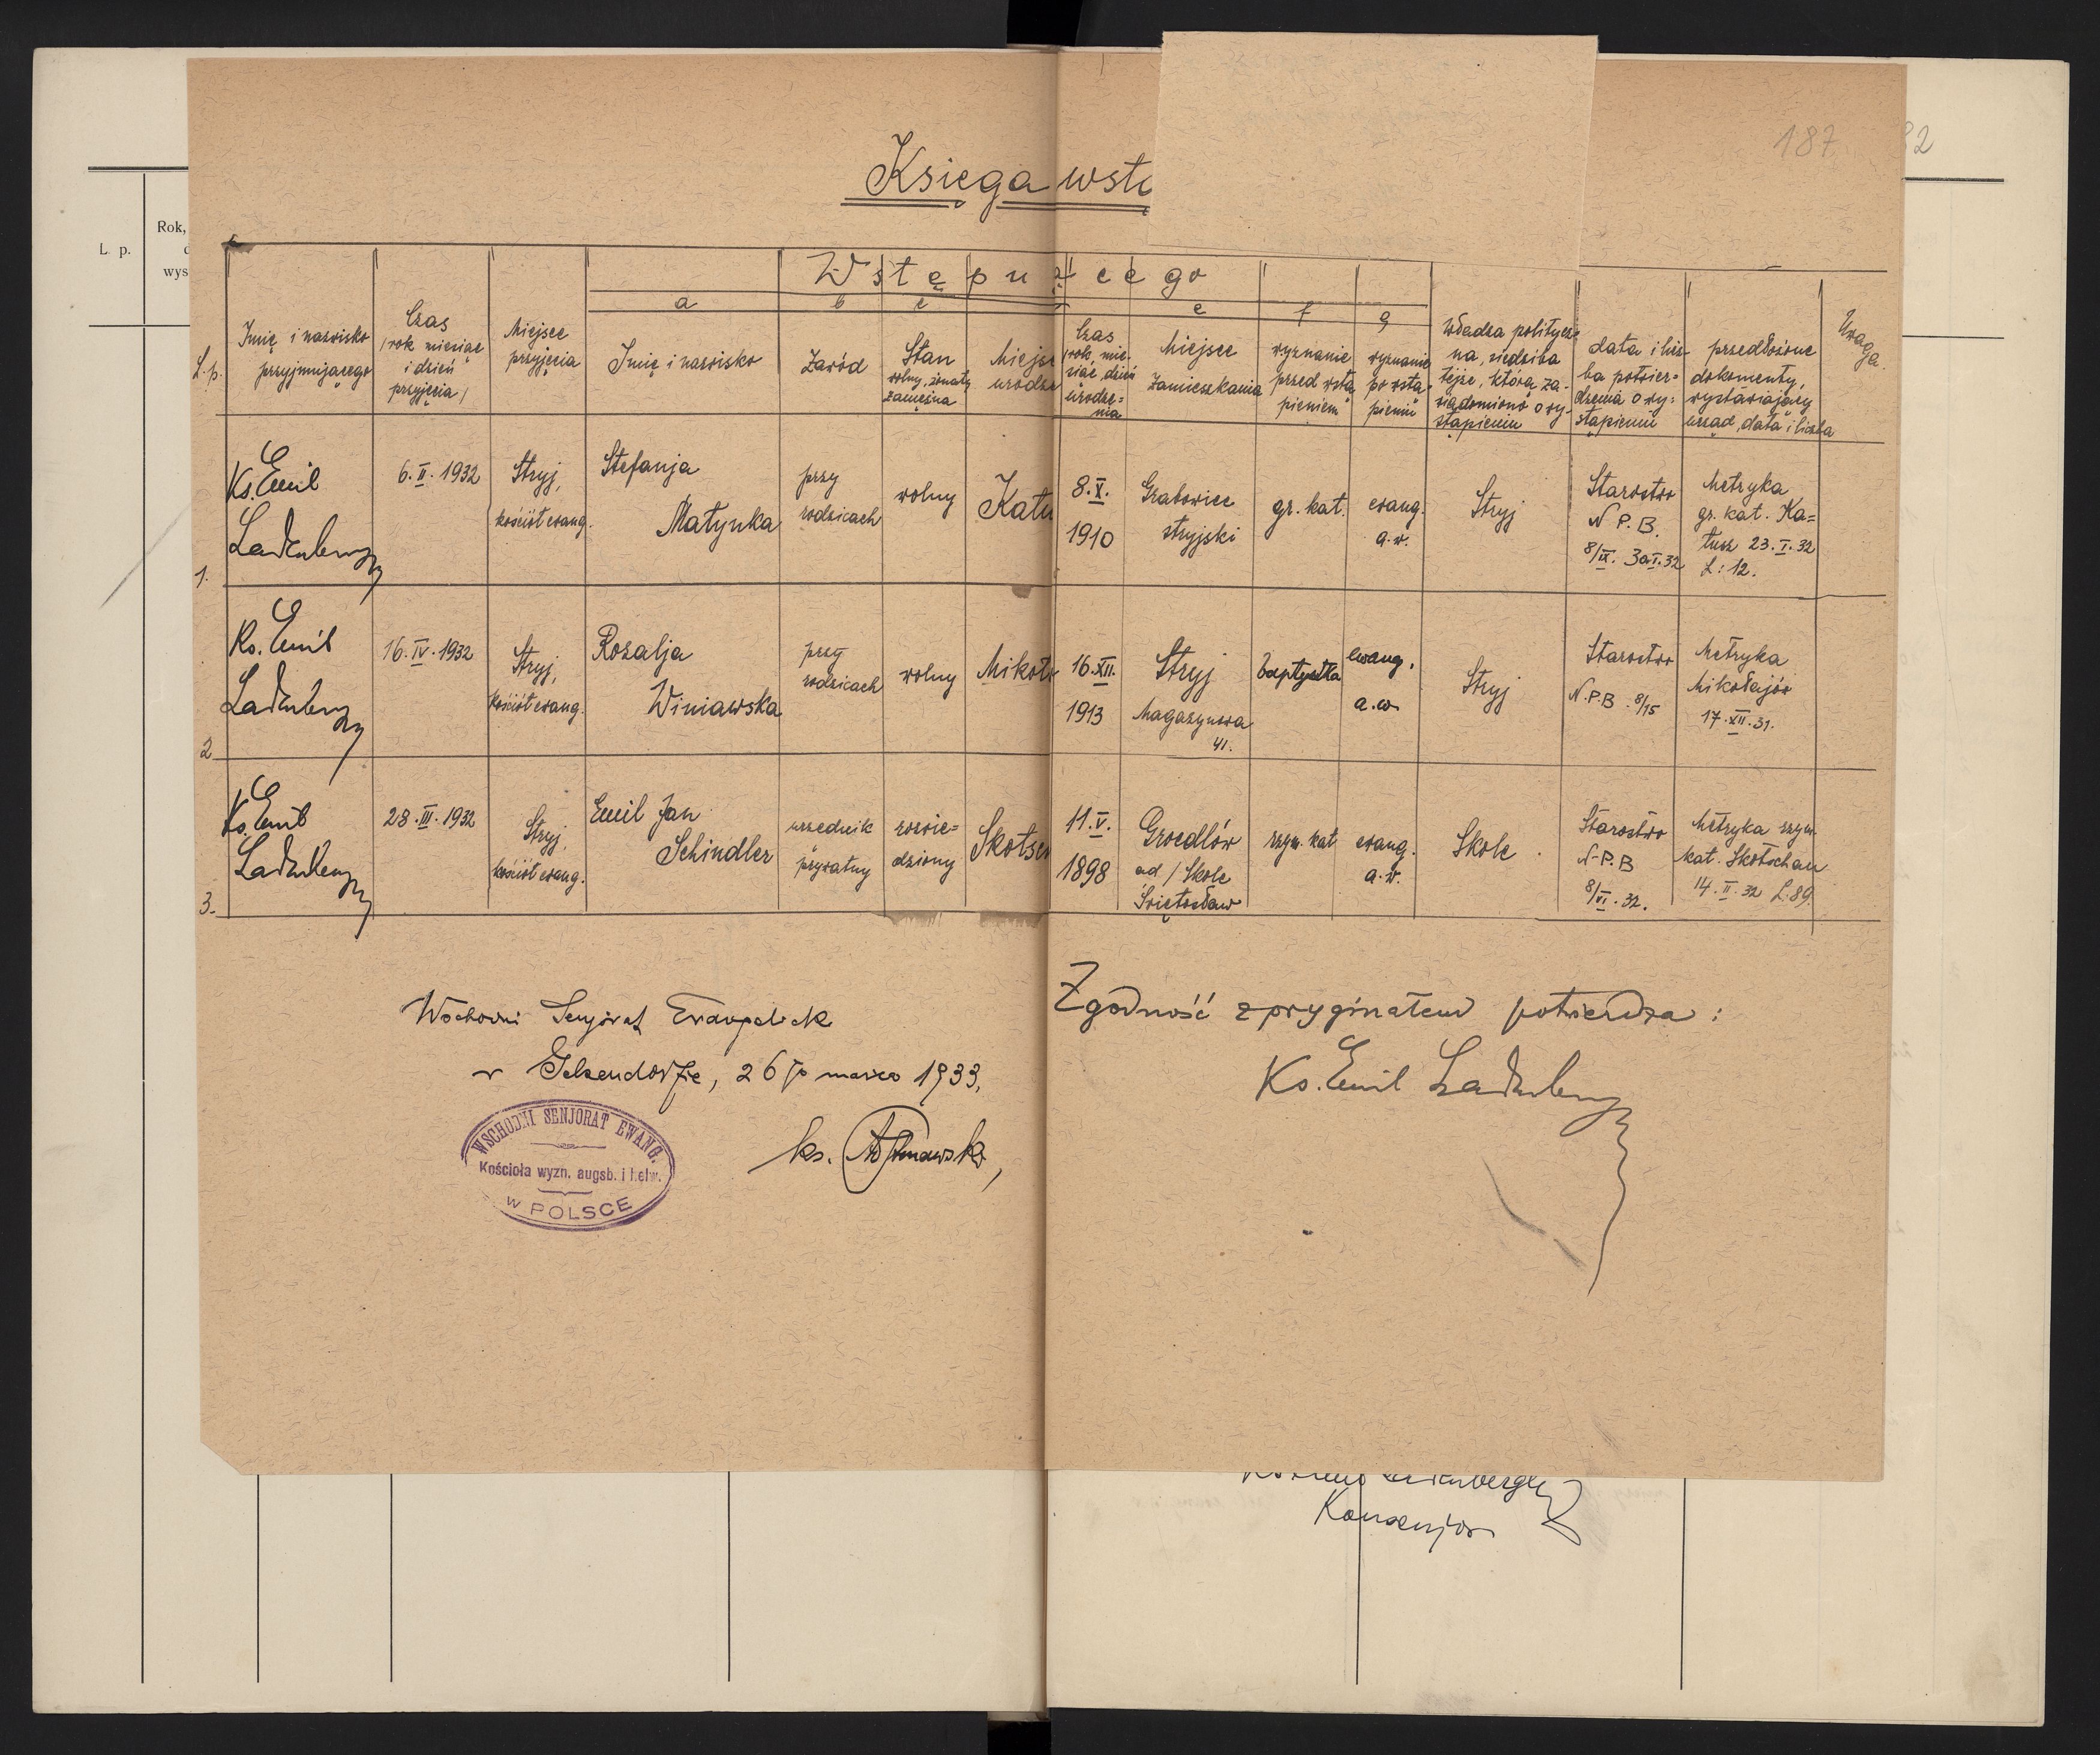 187
32
L. p.
Rok,
wys
Księga wst
Wstępującego
a b c e f g
L.p.
Imię i nazwisko
przyjmującego
Czas
/rok miesiąc
i dzień
przyjęcia/
Miejsce
przyjęcia
Imię i nazwisko
Zawód
Stan
wolny, żonaty
zamężna
Miejsc
urodze
Czas
/rok, mie-
siąc, dzień
urodze=
nia
Miejsce
zamieszkania
wyznanie
przed wstą
pieniem
wyznanie
po wstą-
pieniu
Władza politycz-
na, siedziba
tejże, którą za-
wiadomiono o wy-
stąpieniu
data i licz-
ba potwier=
dzenia o wy=
stąpieniu
przedłożone
dokumenty,
wystawiający
urząd, data i liczba
Uwaga.
1.
Ks. Emil
Ladenberger
6.II.1932
Stryj,
kościół ewang.
Stefanja
Matynka
przy
rodzicach
wolny
Kału
8.X.
1910
Grabowiec
stryjski
gr. kat.
ewang.
a.w.
Stryj
Starostwo
N P.B.
8/IX. 30.I.32
Metryka
gr. kat. Ka=
łusz 23.I.32
L: 12.
2.
Ks. Emil
Ladenberger
16.IV.1932
Stryj,
kościół ewang.
Rozalja
Winiawska
przy
rodzicach
wolny
Mikoło
16.XII.
1913
Stryj
Magazynowa
41.
baptystka
ewang.
a.w.
Stryj
Starostwo
N.P.B. 8/15
Metryka
Mikołajów
17.XII.31.
3.
Ks. Emil
Ladenberger
28.III.1932
Stryj,
kościół ewang.
Emil Jan
Schindler
urzednik
prywatny
rozwie=
dziony
Skotsc
11.V.
1898
Groedlów
ad / Skole
Świętosław
rzym. kat
ewang.
a.w.
Skole
Starostwo
N.P.B
8/VI.32.
Metryka rzym.
kat. Skotschau
14.II.32 L.89.
Wschodni Senjorat Ewangelicki
w Gelsendorfie, 26go marca 1933,
WSCHODNI SENJORAT EWANG.
Kościoła wyzn. augsb. i helw.
w POLSCE
ks.
Zgodność z oryginałem potwierdza:
Ks. Emil Ladenberger
Ladenberger
Konsenjor